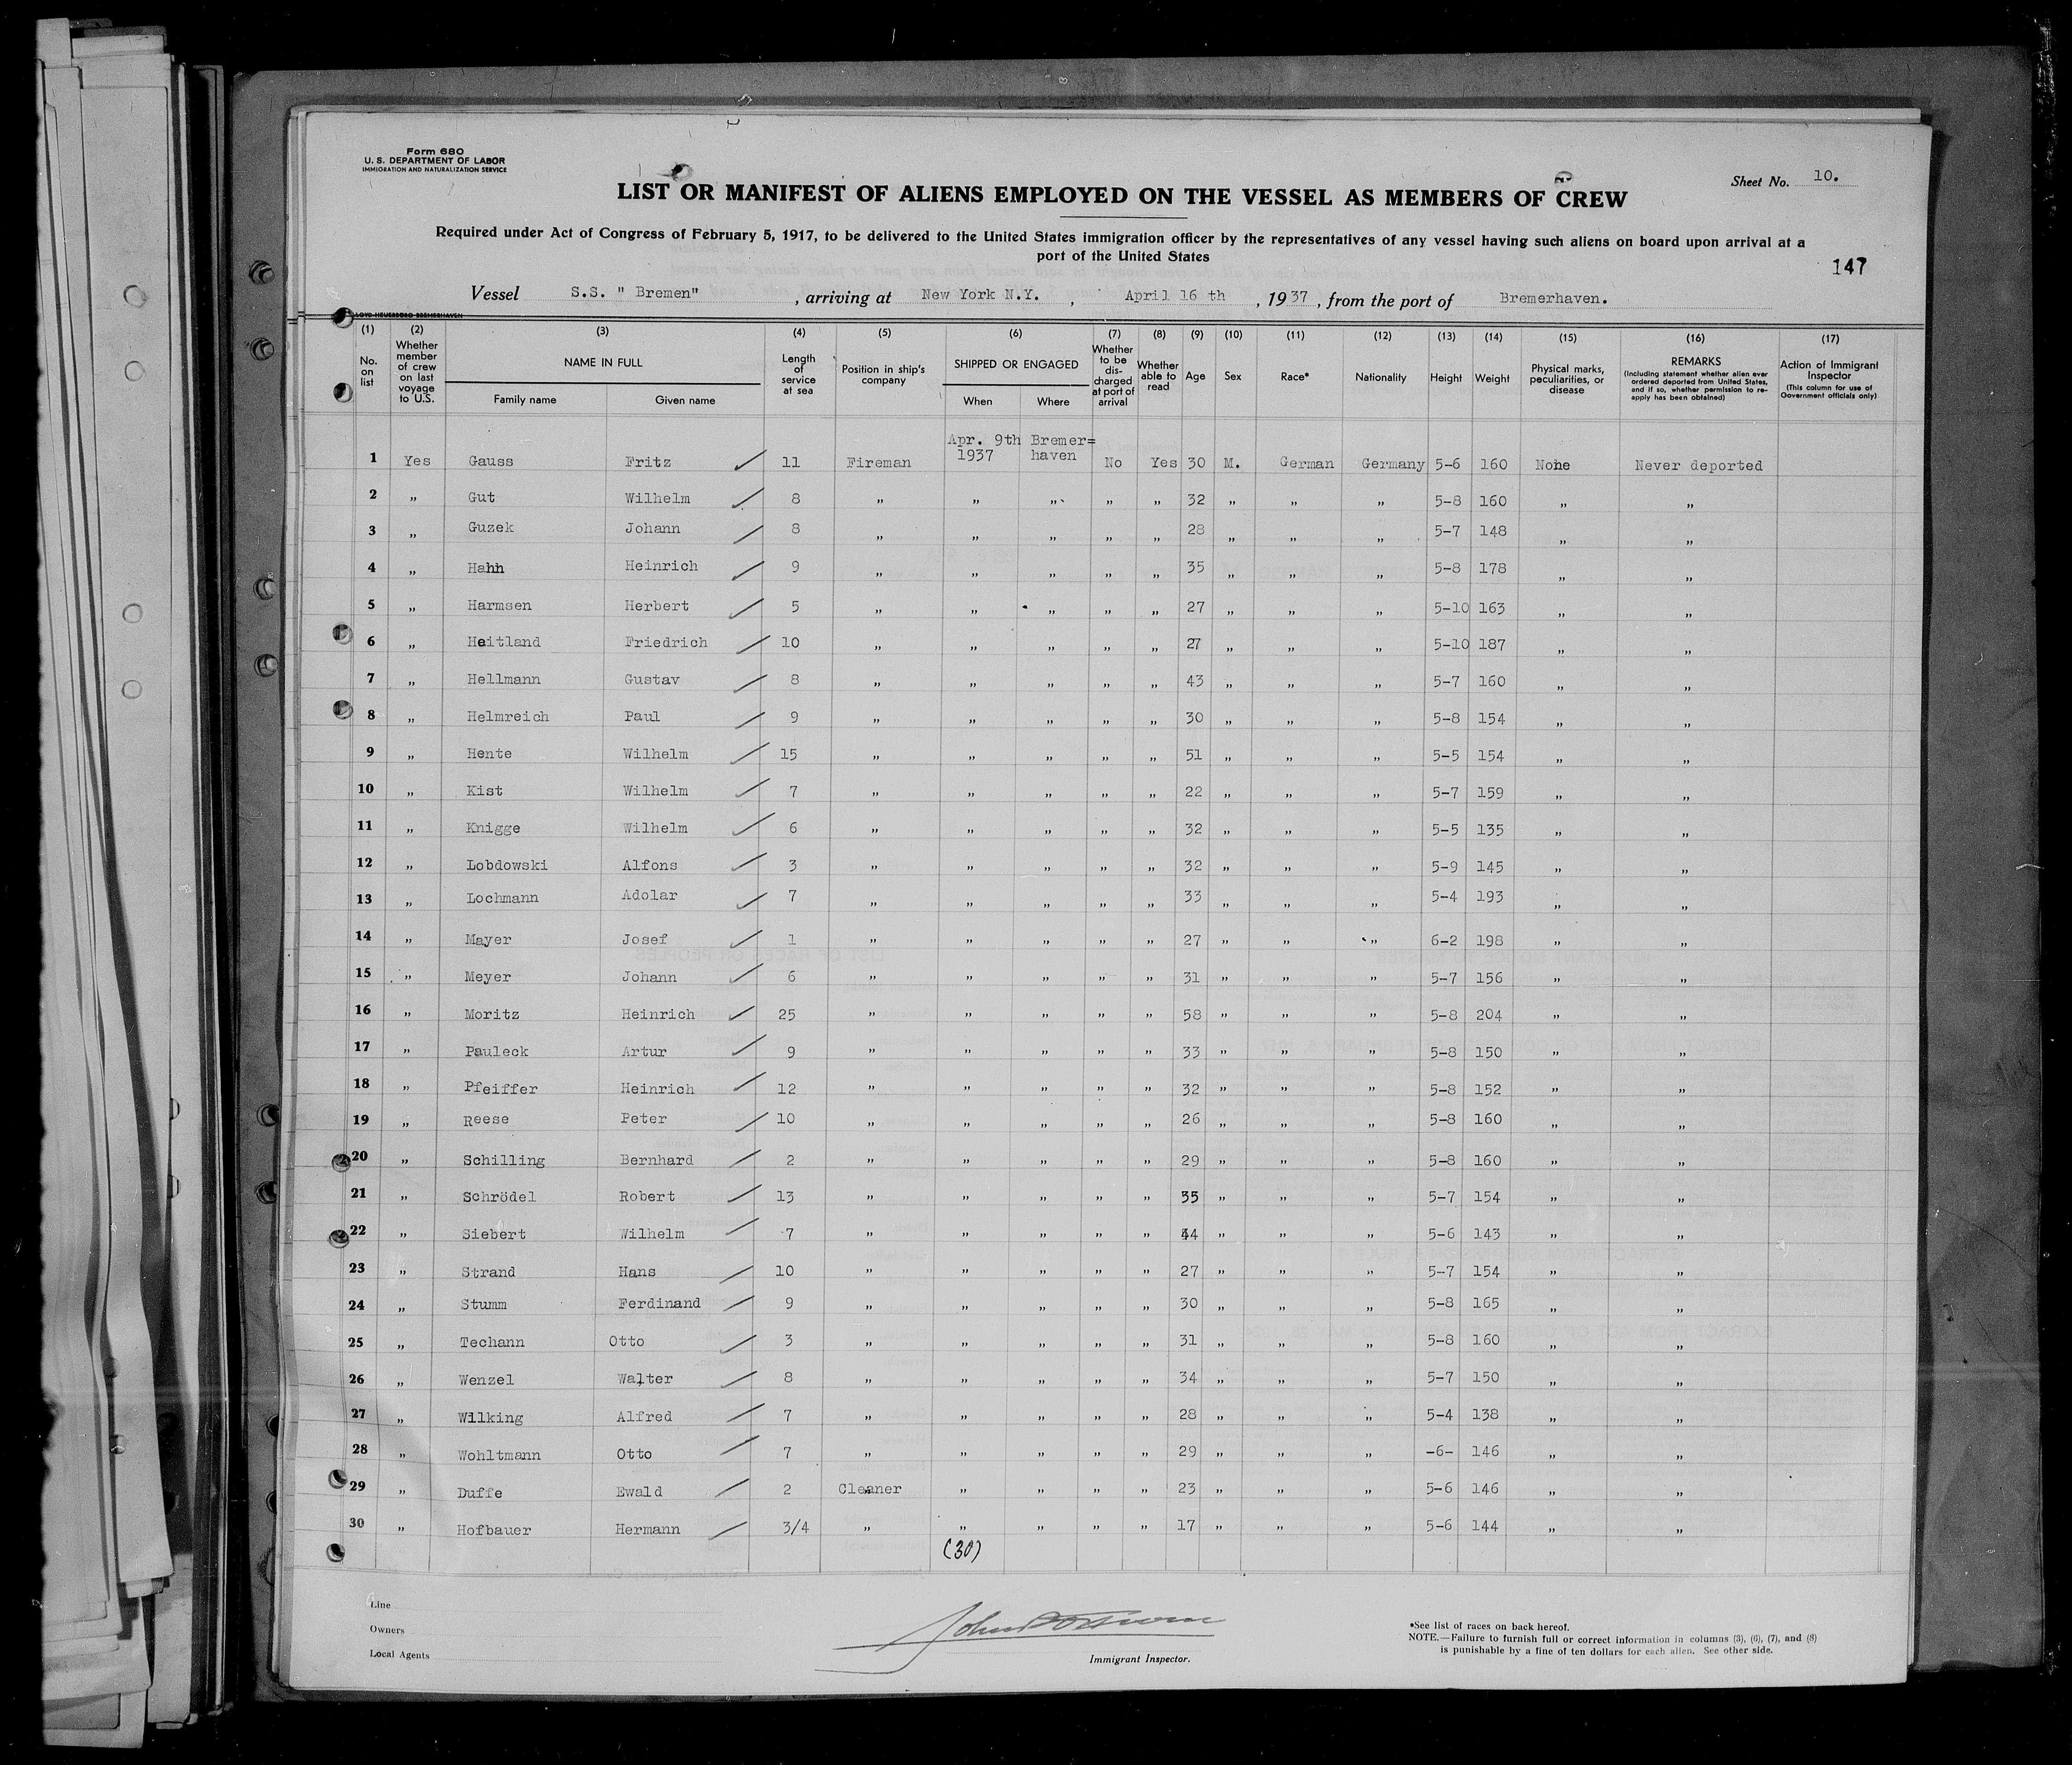 Form 680
U. S. DEPARTMENT OF LABOR
IMMIGRATION AND NATURALIZATION SERVICE
Sheet No. 10.
LIST OR MANIFEST OF ALIENS EMPLOYED ON THE VESSEL AS MEMBERS OF CREW
Required under Act of Congress of February 5, 1917, to be delivered to the United States immigration officer by the representatives of any vessel having such aliens on board upon arrival at a
port of the United States
147
Vessel S.S. " Bremen" , arriving at New York N.Y. , April 16 th , 1937 , from the port of Bremerhaven.
(1) (2) (3) (4) (5) (6) (7) (8) (9) (10) (11) (12) (13) (14) (15) (16) (17)
No. on list Whether member of crew on last voyage to U.S. NAME IN FULL Family name Given name Length of service at sea Position in ship's company SHIPPED OR ENGAGED When Where Whether to be discharged at port of arrival Whether able to read Age Sex Race* Nationality Height Weight Physical marks, peculiarities, or disease REMARKS (Including statement whether alien ever ordered deported from United States, and if so, whether permission to re-apply has been obtained) Action of Immigrant Inspector (This column for use of Government officials only)
1 Yes Gauss Fritz 11 Fireman Apr. 9th 1937 Bremer= haven No Yes 30 M. German Germany 5-6 160 None Never deported
2 „ Gut Wilhelm 8 „ „ „ „ „ 32 „ „ „ 5-8 160 „ „
3 „ Guzek Johann 8 „ „ „ „ „ 28 „ „ „ 5-7 148 „ „
4 „ Hahn Heinrich 9 „ „ „ „ „ 35 „ „ „ 5-8 178 „ „
5 „ Harmsen Herbert 5 „ „ „ „ „ 27 „ „ „ 5-10 163 „ „
6 „ Heitland Friedrich 10 „ „ „ „ „ 27 „ „ „ 5-10 187 „ „
7 „ Hellmann Gustav 8 „ „ „ „ „ 43 „ „ „ 5-7 160 „ „
8 „ Helmreich Paul 9 „ „ „ „ „ 30 „ „ „ 5-8 154 „ „
9 „ Hente Wilhelm 15 „ „ „ „ „ 51 „ „ „ 5-5 154 „ „
10 „ Kist Wilhelm 7 „ „ „ „ „ 22 „ „ „ 5-7 159 „ „
11 „ Knigge Wilhelm 6 „ „ „ „ „ 32 „ „ „ 5-5 135 „ „
12 „ Lobdowski Alfons 3 „ „ „ „ „ 32 „ „ „ 5-9 145 „ „
13 „ Lochmann Adolar 7 „ „ „ „ „ 33 „ „ „ 5-4 193 „ „
14 „ Mayer Josef 1 „ „ „ „ „ 27 „ „ „ 6-2 198 „ „
15 „ Meyer Johann 6 „ „ „ „ „ 31 „ „ „ 5-7 156 „ „
16 „ Moritz Heinrich 25 „ „ „ „ „ 58 „ „ „ 5-8 204 „ „
17 „ Pauleck Artur 9 „ „ „ „ „ 33 „ „ „ 5-8 150 „ „
18 „ Pfeiffer Heinrich 12 „ „ „ „ „ 32 „ „ „ 5-8 152 „ „
19 „ Reese Peter 10 „ „ „ „ „ 26 „ „ „ 5-8 160 „ „
20 „ Schilling Bernhard 2 „ „ „ „ „ 29 „ „ „ 5-8 160 „ „
21 „ Schrödel Robert 13 „ „ „ „ „ 35 „ „ „ 5-7 154 „ „
22 „ Siebert Wilhelm 7 „ „ „ „ „ 44 „ „ „ 5-6 143 „ „
23 „ Strand Hans 10 „ „ „ „ „ 27 „ „ „ 5-7 154 „ „
24 „ Stumm Ferdinand 9 „ „ „ „ „ 30 „ „ „ 5-8 165 „ „
25 „ Techann Otto 3 „ „ „ „ „ 31 „ „ „ 5-8 160 „ „
26 „ Wenzel Walter 8 „ „ „ „ „ 34 „ „ „ 5-7 150 „ „
27 „ Wilking Alfred 7 „ „ „ „ „ 28 „ „ „ 5-4 138 „ „
28 „ Wohltmann Otto 7 „ „ „ „ „ 29 „ „ „ -6- 146 „ „
29 „ Duffe Ewald 2 Cleaner „ „ „ „ 23 „ „ „ 5-6 146 „ „
30 „ Hofbauer Hermann 3/4 „ „ „ „ „ 17 „ „ „ 5-6 144 „ „
(30)
Line
Owners
Local Agents
Immigrant Inspector.
*See list of races on back hereof.
NOTE.—Failure to furnish full or correct information in columns (3), (6), (7), and (8)
is punishable by a fine of ten dollars for each alien. See other side.